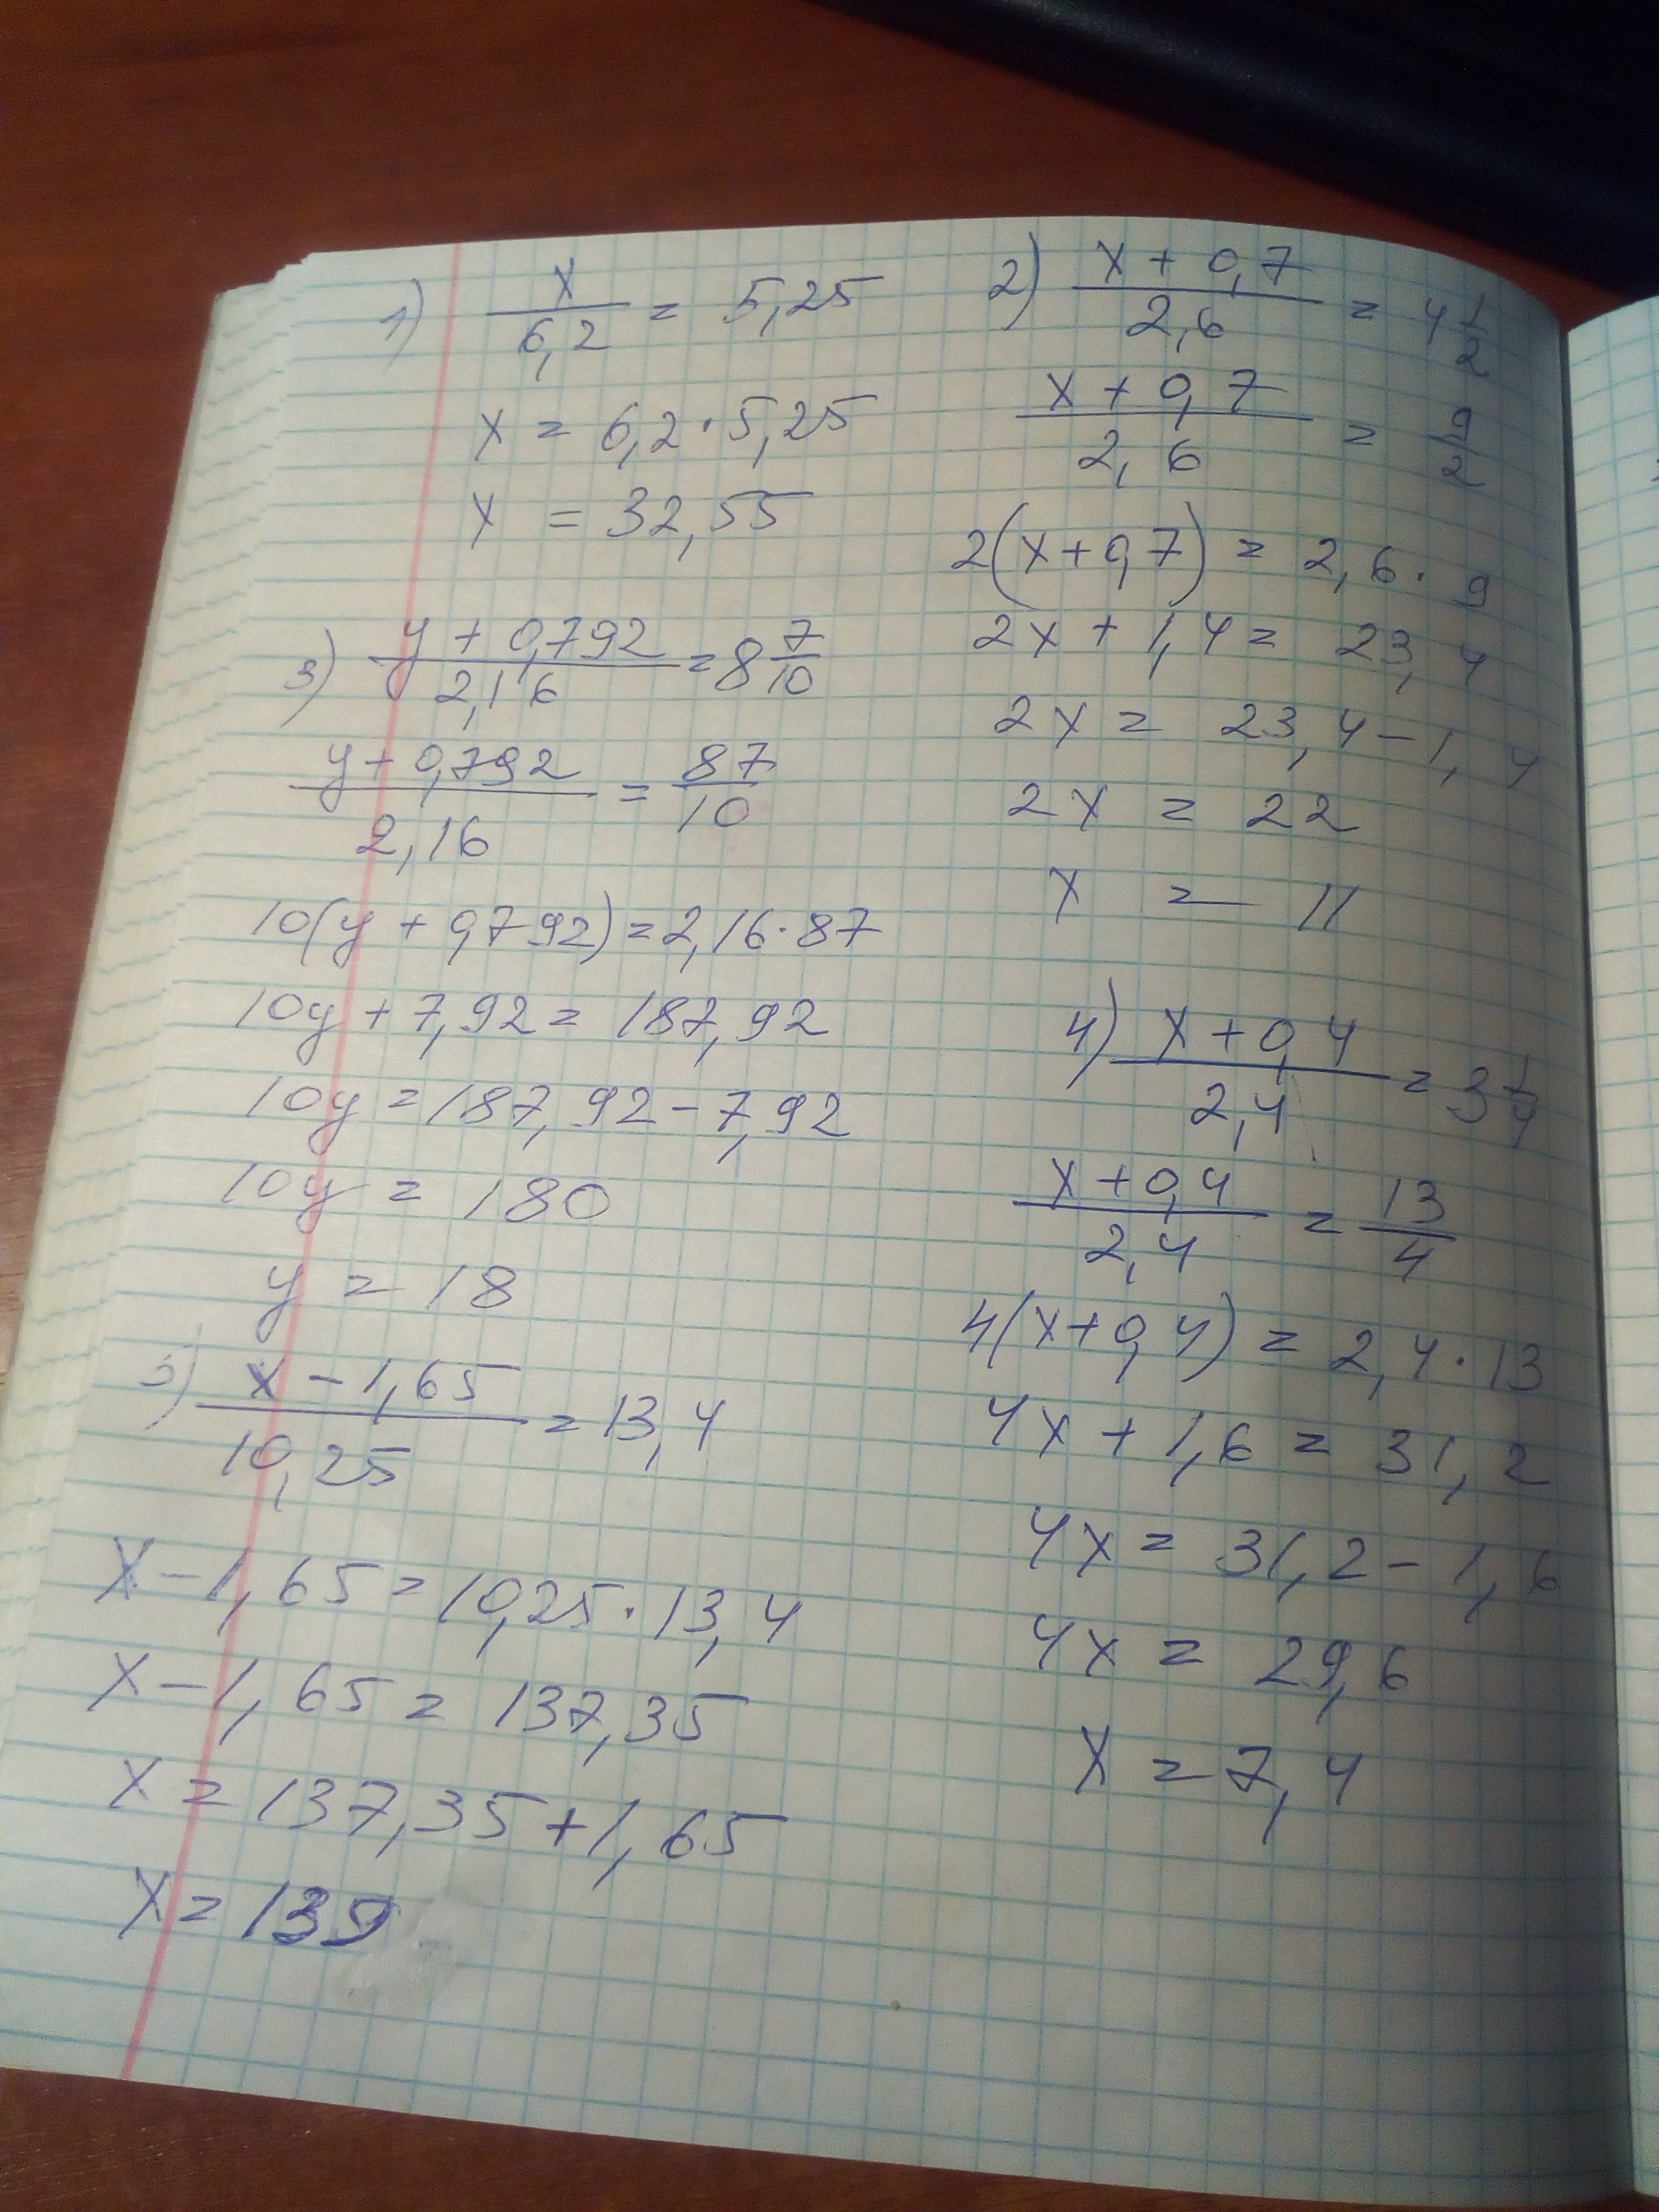 1) x/6,2 = 5,25
x = 6,2 · 5,25
x = 32,55
2) (x + 0,7)/2,6 = 4 1/2
(x + 0,7)/2,6 = 9/2
2(x + 0,7) = 2,6 · 9
2x + 1,4 = 23,4
2x = 23,4 - 1,4
2x = 22
x = 11
3) (y + 0,792)/2,16 = 8 7/10
(y + 0,792)/2,16 = 87/10
10(y + 0,792) = 2,16 · 87
10y + 7,92 = 187,92
10y = 187,92 - 7,92
10y = 180
y = 18
4) (x + 0,4)/2,4 = 3 1/4
(x + 0,4)/2,4 = 13/4
4(x + 0,4) = 2,4 · 13
4x + 1,6 = 31,2
4x = 31,2 - 1,6
4x = 29,6
x = 7,4
5) (x - 1,65)/10,25 = 13,4
x - 1,65 = 10,25 · 13,4
x - 1,65 = 137,35
x = 137,35 + 1,65
x = 139